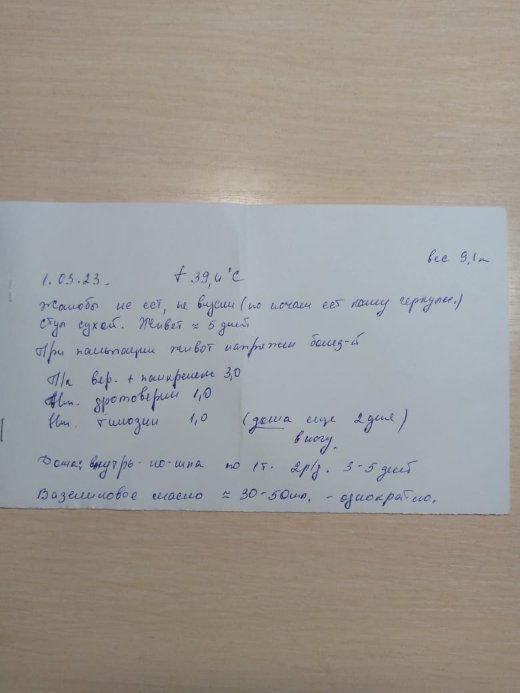 вес 9,1
1.03.23. t 39,4 °C
Жалобы не ест, не (по ночам ест кашу геркулес.)
Стул сухой. Живет ≈ 5 дней
При пальпации живот напряжен болез-й
П/к вер. + панкреине 3,0
Вм. дротоверин 1,0
Вм. тилозин 1,0 (дома еще 2 дня)
в ногу.
Дома: внутрь но-шпа по 1т. 2р/д. 3-5 дней
Вазелиновое масло ≈ 30-50мл. - однократно.